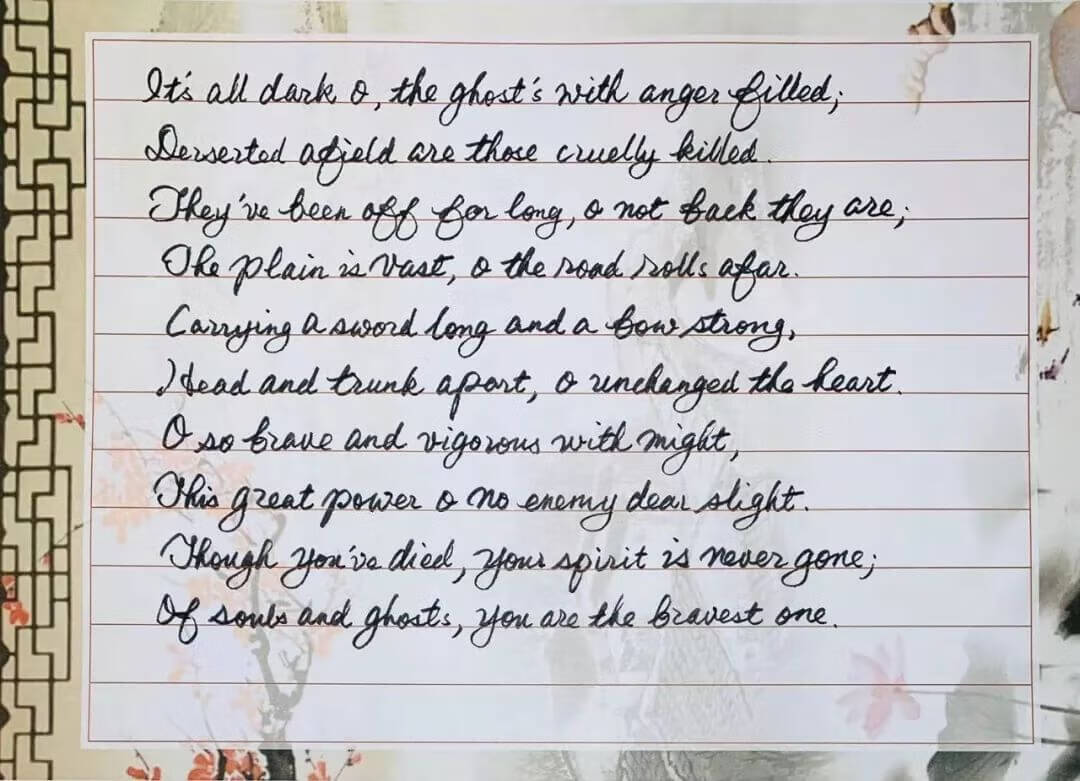 It's all dark o, the ghost's with anger filled;
Derserted afield are those cruelly killed.
They've been off for long, o not back they are;
The plain is vast, o the road rolls afar.
Carrying a sword long and a bow strong,
Head and trunk apart, o unchanged the heart.
O so brave and vigorous with might,
This great power o no enemy dear slight.
Though you've died, your spirit is never gone;
Of souls and ghosts, you are the bravest one.